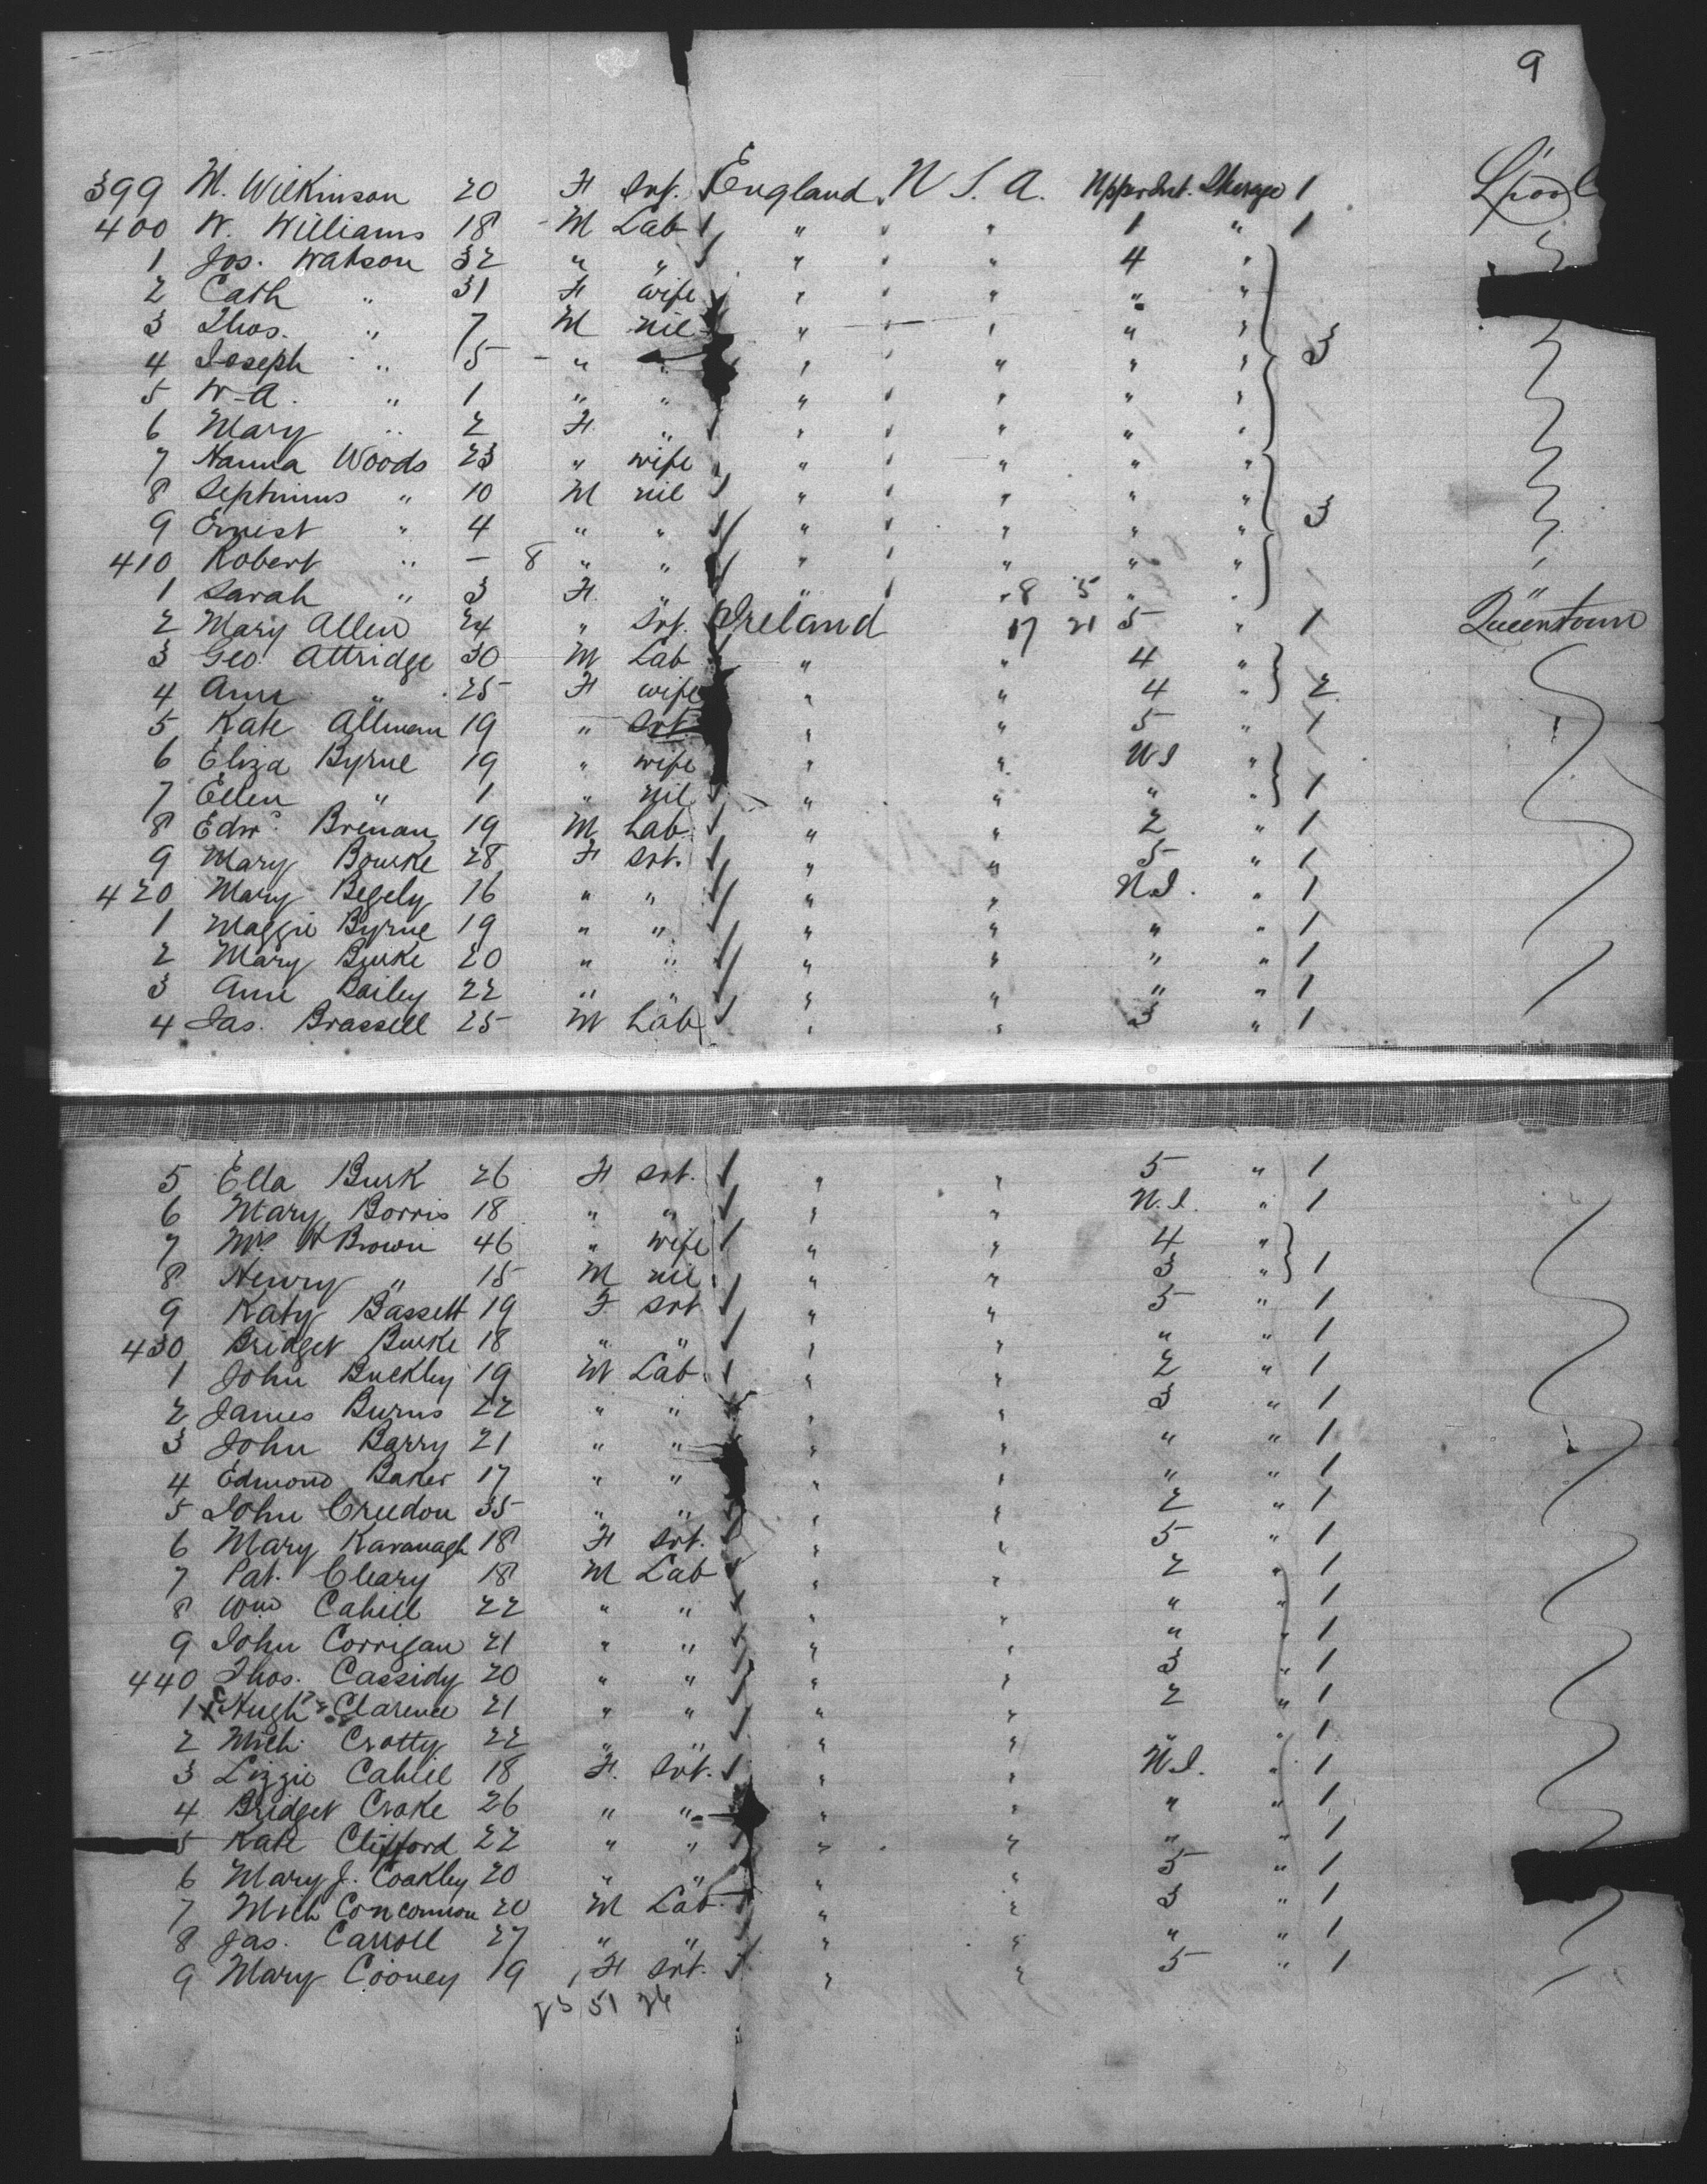 9
399 M. Wilkinson 20 F Svt. England U S. A. Upper Dnt. Sterage 1 L'pool
400 W. Williams 18 - M Lab " " " 1 " 1
1 Jos. Watson 32 " " " " " 4 "
2 Cath " 31 F wife " " " " "
3 Thos. " 7 M nil " " " " " 3
4 Joseph " 5 - " " " " " " "
5 W-A. " 1 " " " " " "
6 Mary " 2 F " " " " " "
7 Hanna Woods 23 " wife " " " " "
8 Septimus " 10 M nil " " " " "
9 Ernest " 4 " " " " " " " 3
410 Robert " - 8 " " " " " "
1 Sarah " 3 F " " " " 8 5 " "
2 Mary Allen 24 " Svt. Ireland 17 21 5 " 1 Queentown
3 Geo. Attridge 30 M Lab " " 4 "
4 Ann " 25 F wife " " 4 " 2
5 Kate Allman 19 " Svt. " " 5 " 1
6 Eliza Byrne 19 " wife " " N.I "
7 Ellen " 1 " nil " " " " 1
8 Edwd. Brenan 19 M Lab " " 2 " 1
9 Mary Bourke 28 F Svt. " " 5 " 1
420 Mary Begely 16 " " " " N.I. " 1
1 Maggie Byrne 19 " " " " " " 1
2 Mary Burke 20 " " " " " " 1
3 Ann Bailey 22 " " " " " " 1
4 Jas. Brassell 25 M Lab " " 3 " 1
5 Ella Burk 26 F Svt. " " 5 " 1
6 Mary Borris 18 " " " " N.I. " 1
7 Mrs H Brown 46 " wife " " 4 "
8 Henry " 15 M nil " " 3 " 1
9 Katy Bassett 19 F Svt " " 5 " 1
430 Bridget Burke 18 " " " " " " 1
1 John Buckley 19 M Lab. " " 2 " 1
2 James Burns 22 " " " " 3 " 1
3 John Barry 21 " " " " " " 1
4 Edmond Baker 17 " " " " " " 1
5 John Creedon 35 " " " " 2 " 1
6 Mary Kavanagh 18 F Svt. " " 5 " 1
7 Pat. Cleary 18 M Lab " " 2 " 1
8 Wm Cahill 22 " " " " " " 1
9 John Corrigan 21 " " " " " " 1
440 Thos. Cassidy 20 " " " " 3 " 1
1 Hugh Clarence 21 " " " " 2 " 1
2 Mich. Crotty 22 " " " " " " 1
3 Lizzie Cahill 18 F. Svt. " " N.I. " 1
4 Bridget Croke 26 " " " " " " 1
5 Kate Clifford 22 " " " " " " 1
6 Mary J. Coakley 20 " " " " 5 " 1
7 Mich Conconnon 20 M Lab. " " 3 " 1
8 Jas. Carroll 27 " " " " " " 1
9 Mary Cooney 19 F Svt. " " 5 " 1
51